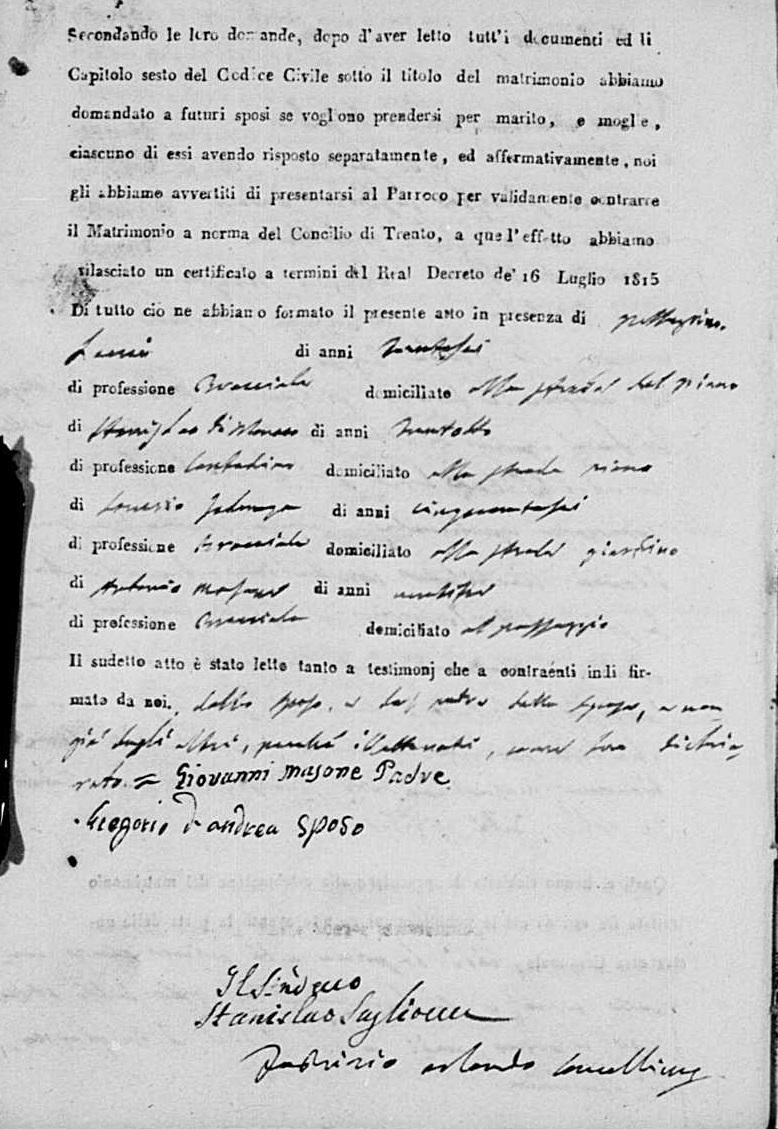 Secondando le loro domande, dopo d'aver letto tutt'i documenti ed il
Capitolo sesto del Codice Civile sotto il titolo del matrimonio abbiamo
domandato a futuri sposi se vogliono prendersi per marito, e moglie,
ciascuno di essi avendo risposto separatamente, ed affermativamente, noi
gli abbiamo avvertiti di presentarsi al Parroco per validamente contrarre
il Matrimonio a norma del Concilio di Trento, a quel'effetto abbiamo
rilasciato un certificato a termini del Real Decreto de' 16 Luglio 1815
Di tutto ciò ne abbiamo formato il presente atto in presenza di
di anni trentasei
di professione Bracciale domiciliato alla strada del piano
di di anni trentotto
di professione Contadino domiciliato alla strada piano
di di anni cinquantasei
di professione Bracciale domiciliato alla strada giardino
di Antonio Masone di anni
di professione Bracciale domiciliato al passaggio
Il sudetto atto è stato letto tanto a testimonj che a contraenti indi fir-
mato da noi, dallo sposo, e dal padre della sposa, e non
già dagli altri, perchè illetterati, come han dichia-
rato = Giovanni Masone Padre
Gregorio d'andrea Sposo
Il Sindaco
Stanislao
Fabrizio Orlando